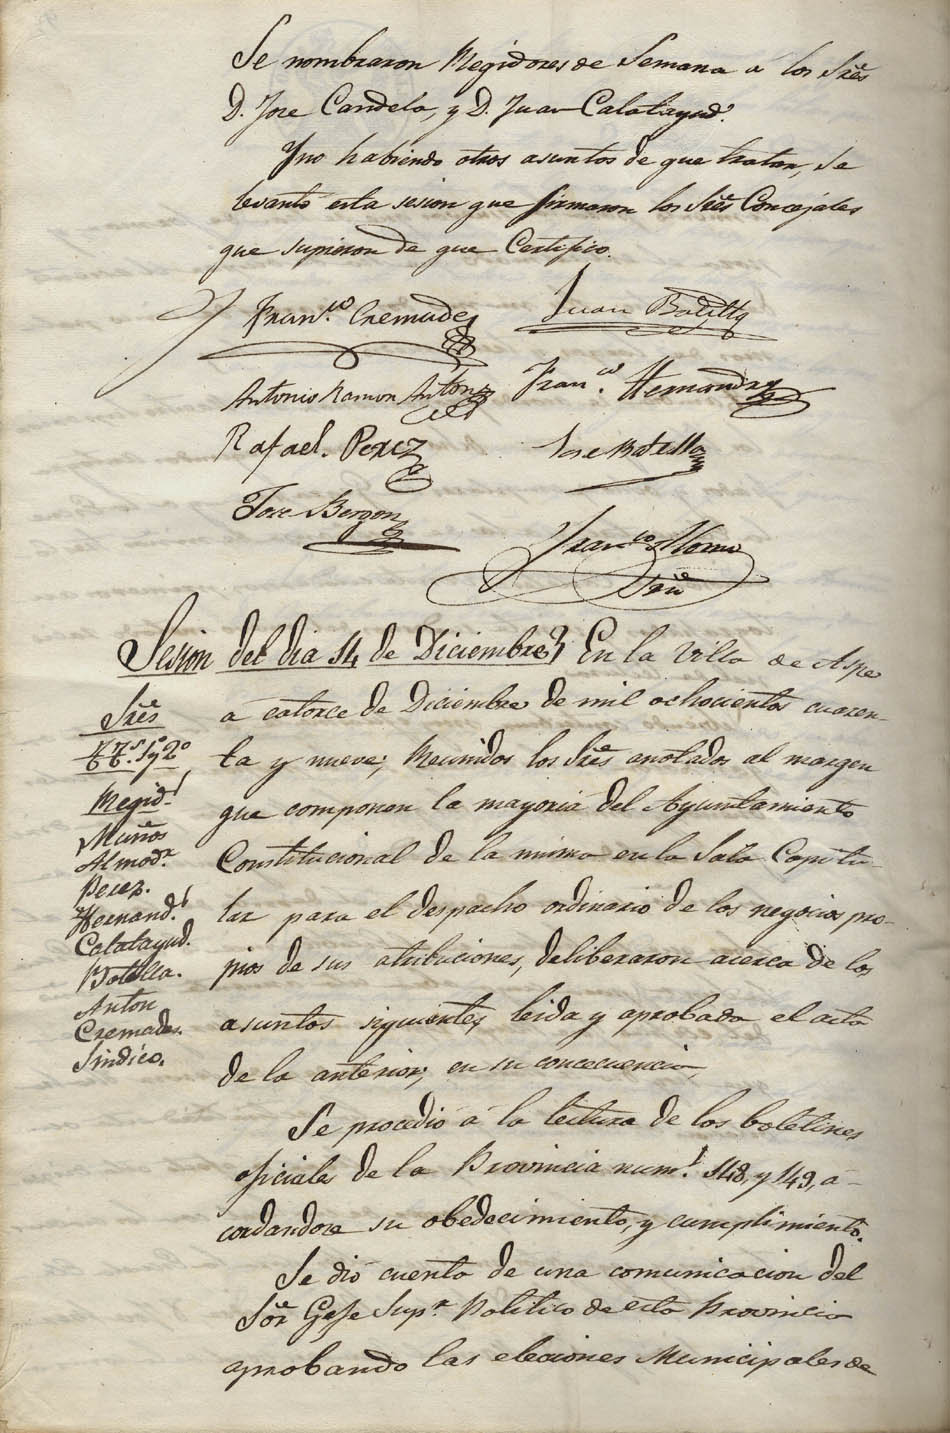 Se nombraron Regidores de Semana a los Sres
D. Jose Candela, y D. Juan Calatayud.
Y no habiendo otros asuntos de que tratar, se
levantó esta sesion que firmaron los Sres Concejales
que supieron de que Certifico.
Franco Cremades
Juan Botella
Antonio Ramon Anton
Franco Hernandez
Rafael Perez
Jose Botella
Jose Bergon
Franco
Srio
Sesion del dia 14 de Diciembre En la Villa de Aspe
a catorce de Diciembre de mil ochocientos cuaren-
ta y nueve, Reunidos los Sres anotados al margen
que componen la mayoria del Ayuntamiento
Constitucional de la misma en la Sala Capitu-
lar para el despacho ordinario de los negocios pro-
pios de sus atribuciones, deliberaron acerca de los
asuntos siguientes, leida y aprobada el acta
de la anterior, en su concecuencia,
Sres
TTs 1º y 2º
Regids
Muños
Almodr
Perez.
Hernands
Calatayud.
Botella.
Anton
Cremades.
Sindico.
Se procedió a la lectura de los boletines
oficiales de la Provincia nums 148, y 149, a-
cordandose su obedecimiento, y cumplimiento.
Se dió cuenta de una comunicacion del
Sor Gefe Supr Politico de esta Provincia
aprobando las elecciones Municipales de